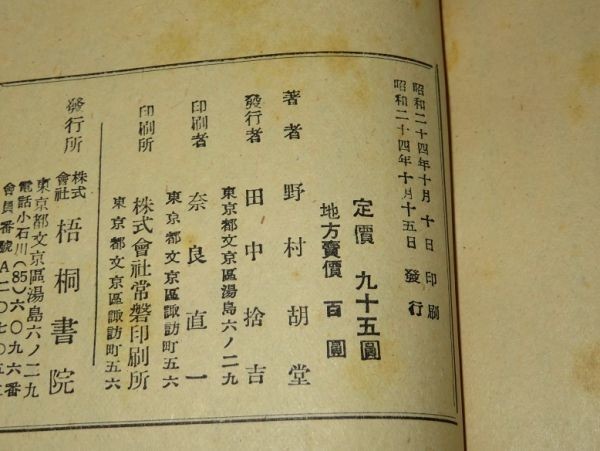 昭和二十四年十月十日 印刷
昭和二十四年十月十五日 發行
定價 九十五圓
地方賣價 百圓
著者 野村胡堂
發行者 田中捨吉
東京都文京區湯島六ノ二九
印刷者 奈良直一
東京都文京區諏訪町五六
印刷所 株式會社常磐印刷所
東京都文京區諏訪町五六
發行所 株式會社 梧桐書院
東京都文京區湯島六ノ二九
電話小石川(85)六〇九六番
會員番號A二〇七〇五